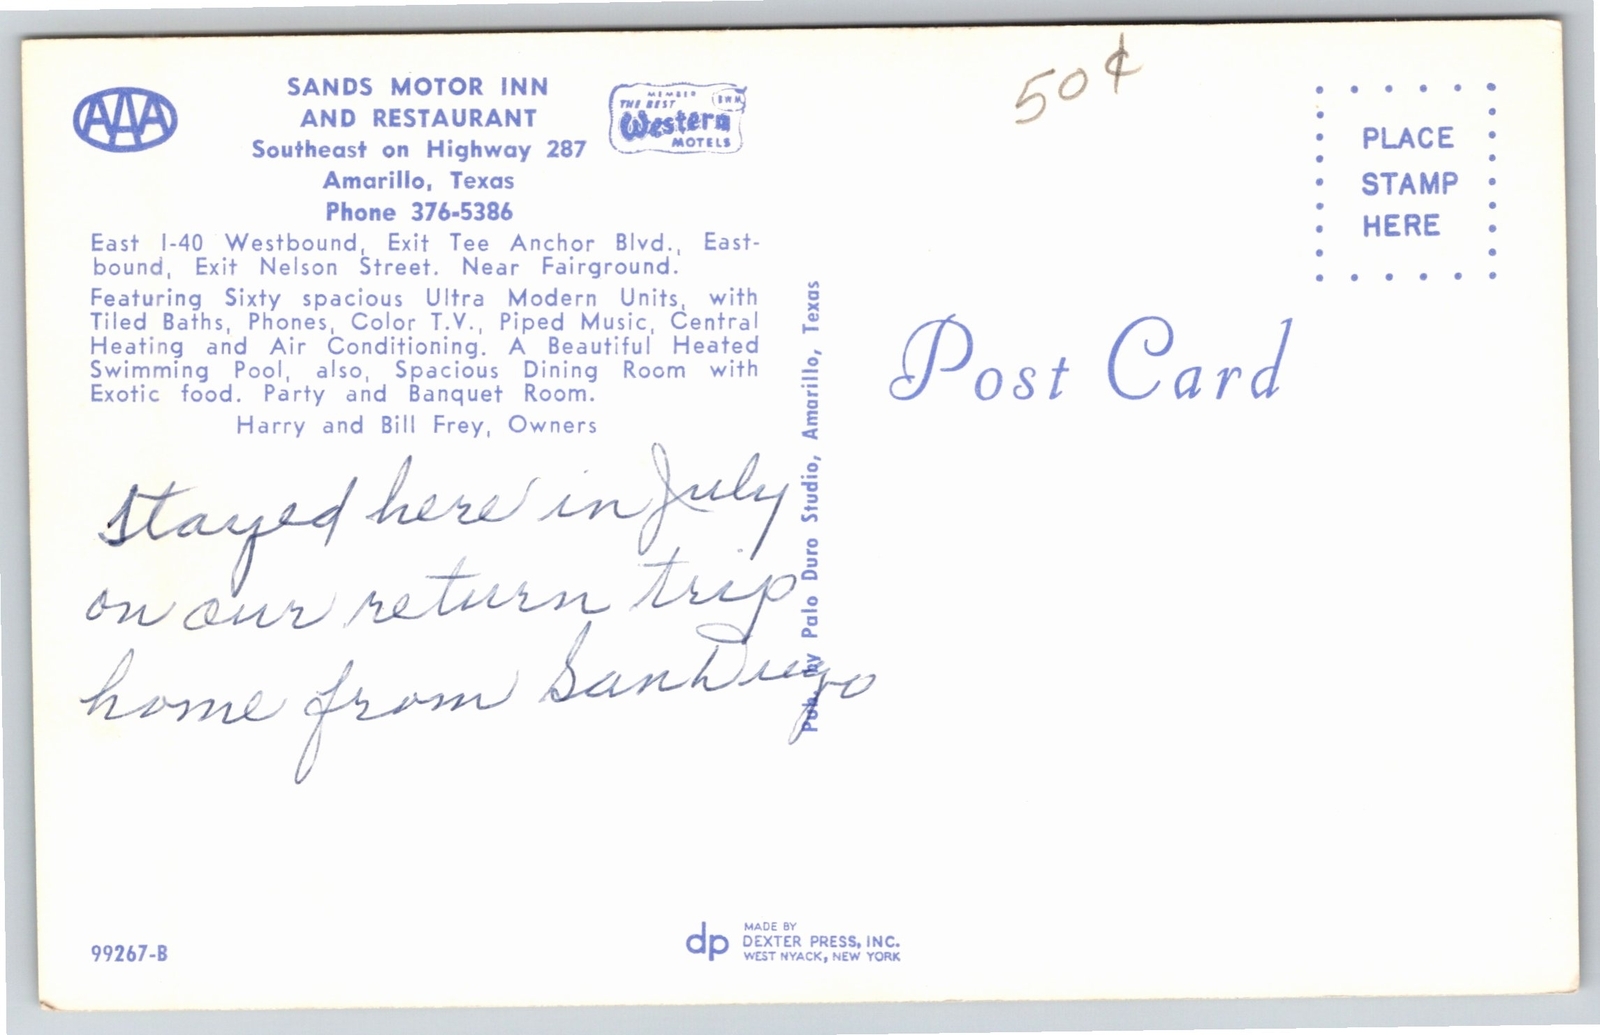 AAA
SANDS MOTOR INN
AND RESTAURANT
Southeast on Highway 287
Amarillo, Texas
Phone 376-5386
MEMBER
THE BEST
BWM
Western
MOTELS
East I-40 Westbound, Exit Tee Anchor Blvd., East-
bound, Exit Nelson Street. Near Fairground.
Featuring Sixty spacious Ultra Modern Units, with
Tiled Baths, Phones, Color T.V., Piped Music, Central
Heating and Air Conditioning. A Beautiful Heated
Swimming Pool, also, Spacious Dining Room with
Exotic food. Party and Banquet Room.
Harry and Bill Frey, Owners
Stayed here in July
on our return trip
home from San Diego
99267-B
Pub. by Palo Duro Studio, Amarillo, Texas
dp
MADE BY
DEXTER PRESS, INC.
WEST NYACK, NEW YORK
50¢
PLACE
STAMP
HERE
Post Card